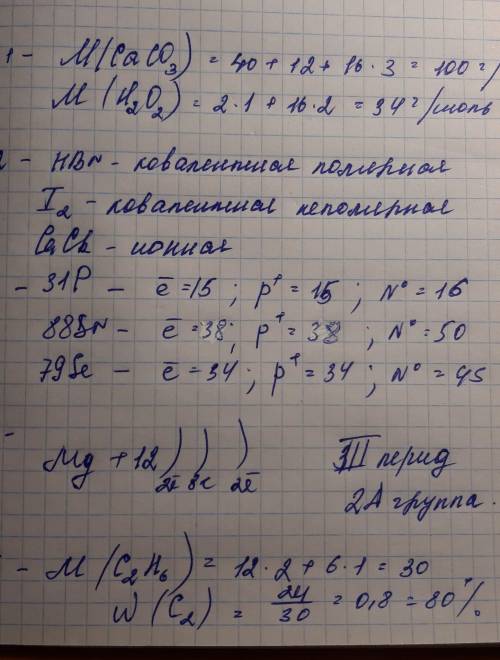 1 - M(CaCO3) = 40 + 12 + 16 · 3 = 100 г/
M(H2O2) = 2 · 1 + 16 · 2 = 34 г/моль
2 - HBr - ковалентная полярная
I2 - ковалентная неполярная
CaCl2 - ионная
- 31P - ē = 15 ; p+ = 15 ; n° = 16
88Sr - ē = 38 ; p+ = 38 ; n° = 50
79Se - ē = 34 ; p+ = 34 ; n° = 45
- Mg + 12 ) ) )
2ē 8ē 2ē
III перид
2А группа.
- M(C2H6) = 12 · 2 + 6 · 1 = 30
W(C2) = 24/30 = 0,8 = 80%